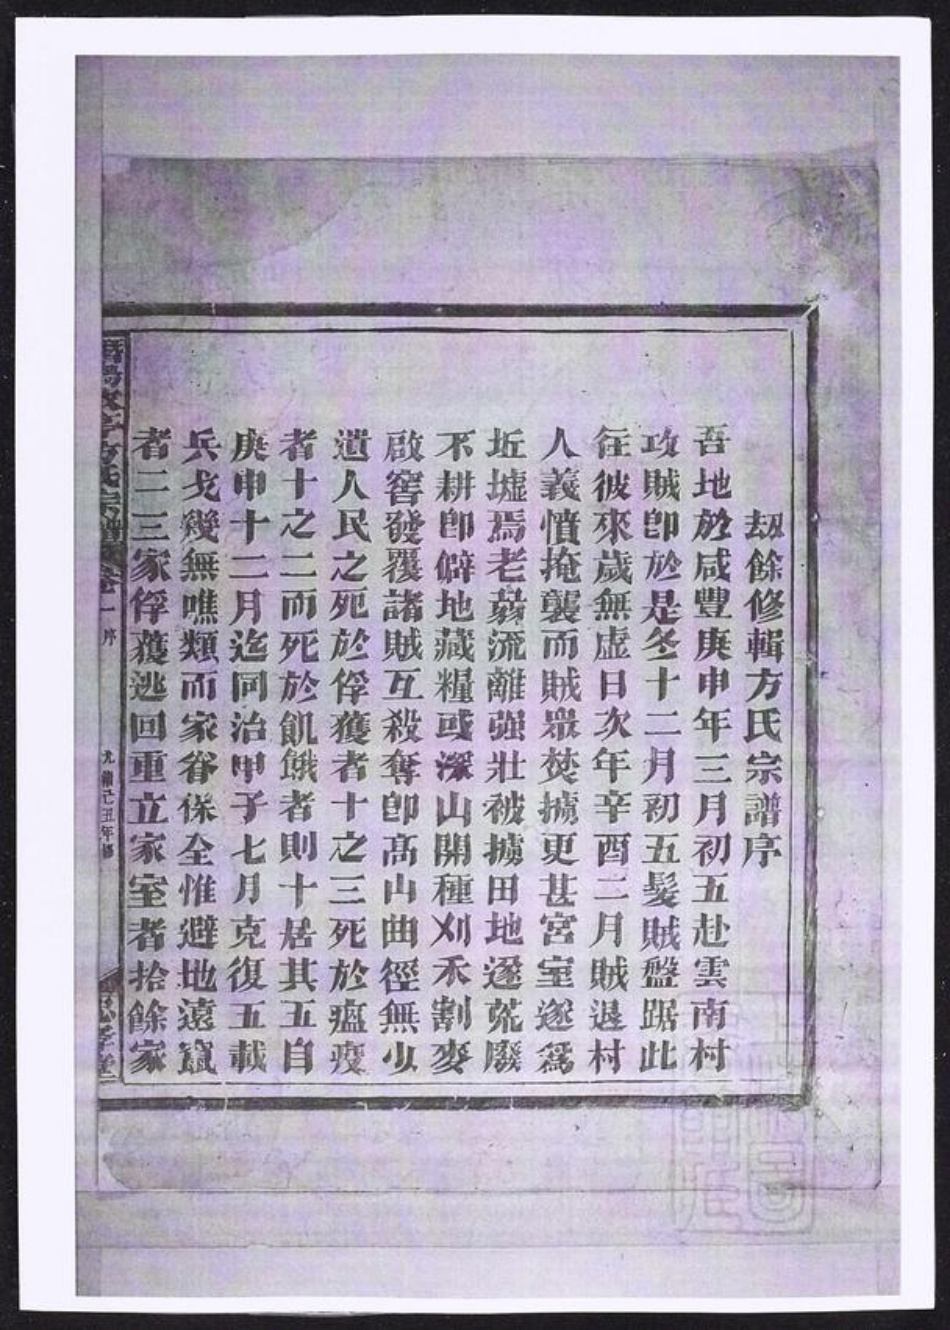 劫餘修輯方氏宗譜序
吾地於咸豐庚申年三月初五赴雲南村
攻賊卽於是冬十二月初五髮賊盤踞此
往彼來歲無虛日次年辛酉二月賊退村
人義憤掩襲而賊眾焚擄更甚宮室遂為
坵墟焉老羸流離强壯被擄田地遂荒廢
不耕卽僻地藏糧或深山開種刈禾割麥
啟窖發覆諸賊互殺奪卽高山曲徑無少
遺人民之死於俘獲者十之三死於瘟疫
者十之二而死於飢餓者則十居其五自
庚申十二月迄同治甲子七月克復五載
兵戈幾無噍類而家眷保全惟避地遠竄
者二三家俘獲逃回重立家室者拾餘家
方氏宗譜 卷一 序 光緒己丑年修